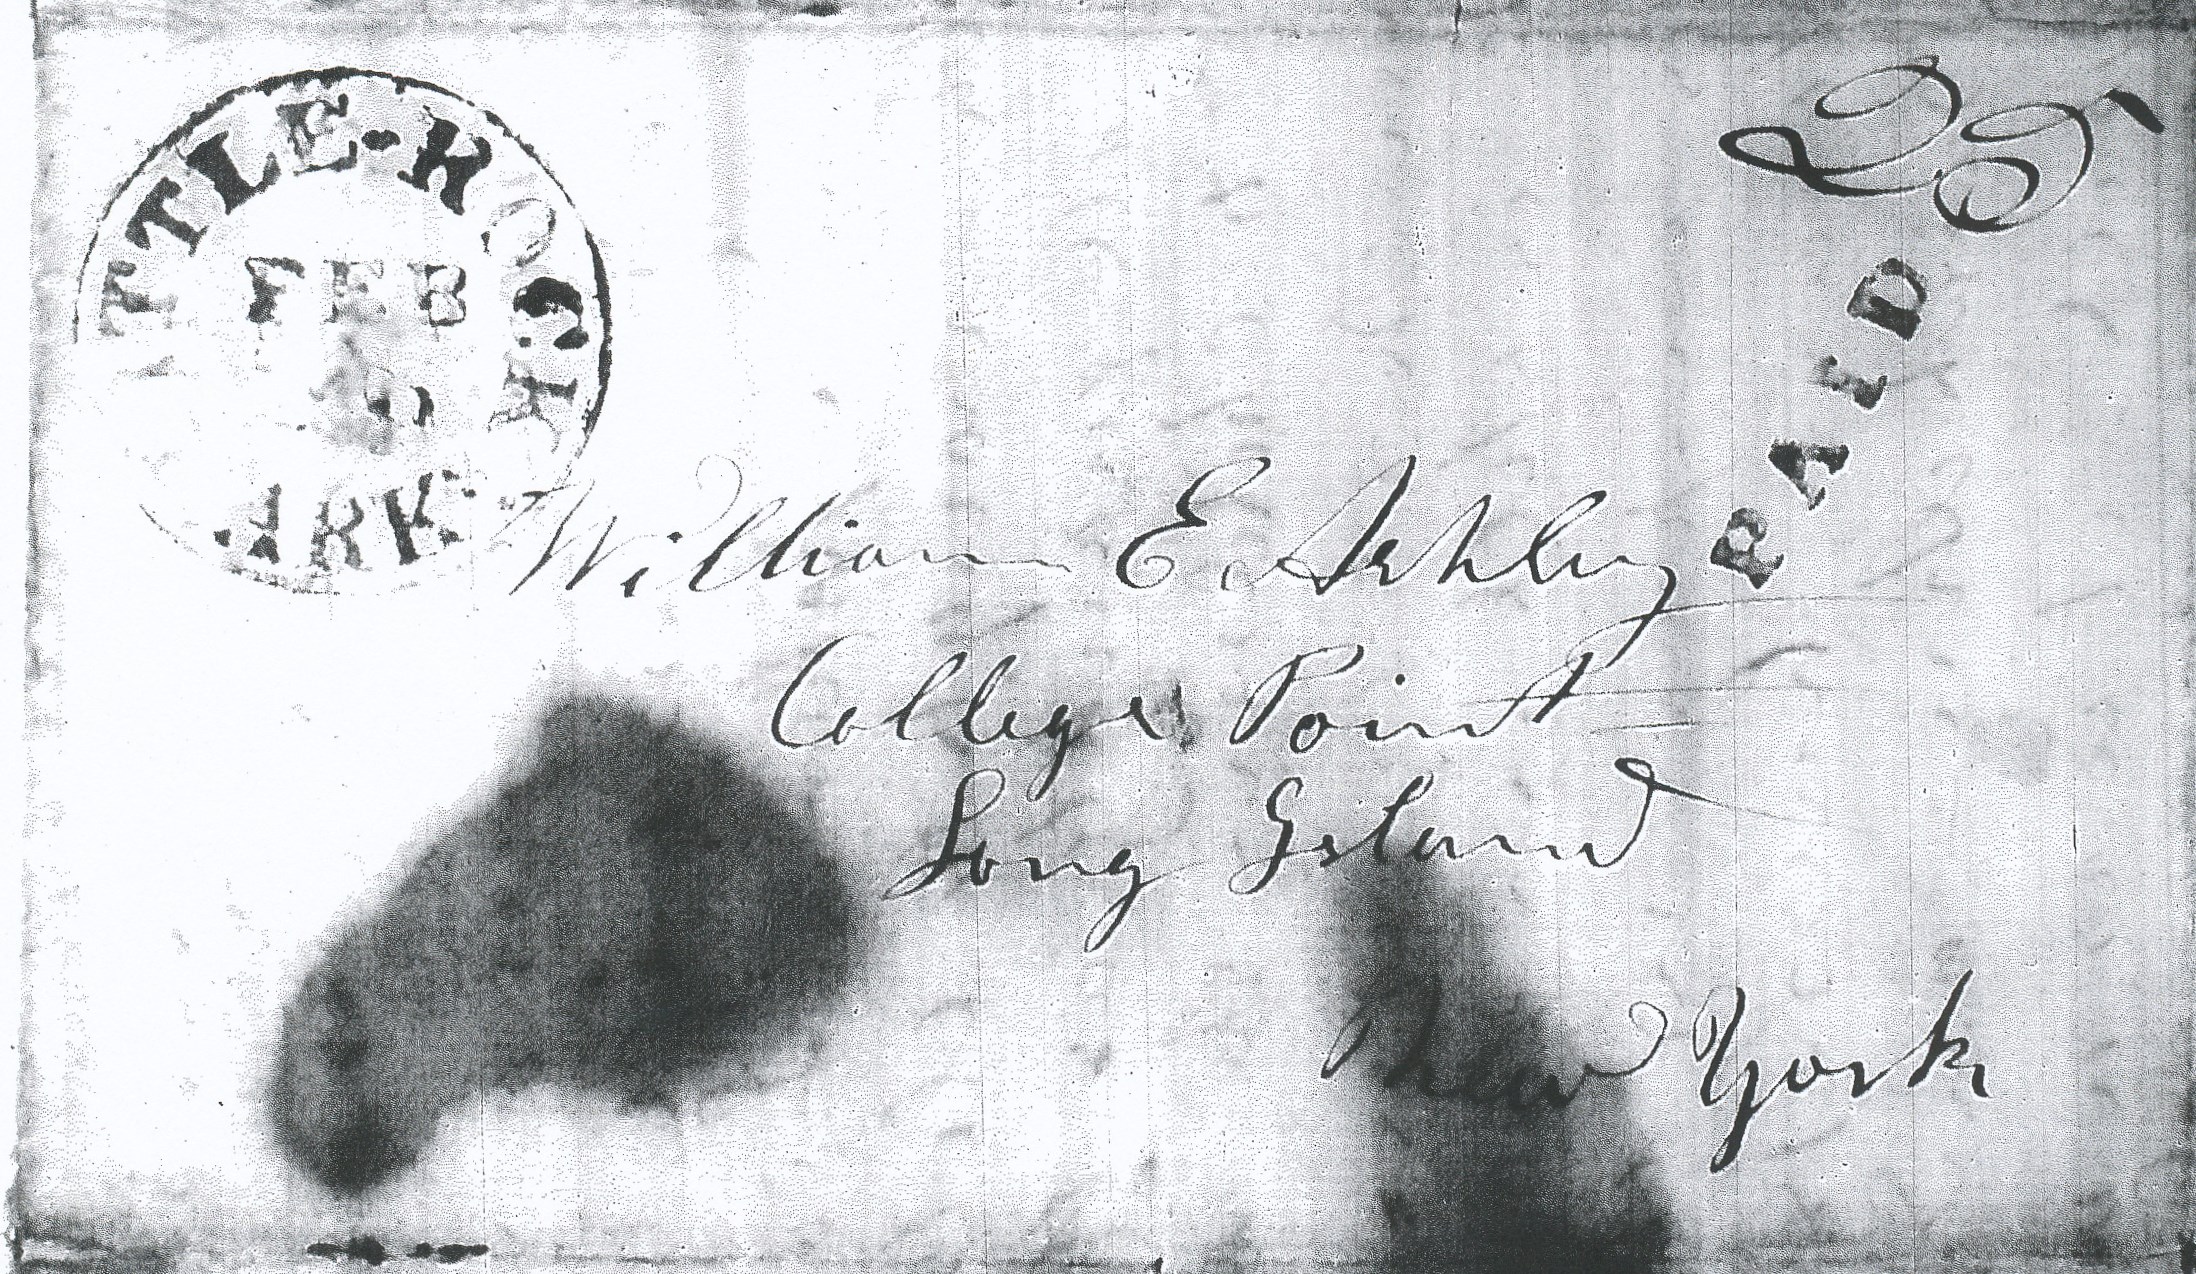 TTLE-ROCK
FEB
ARK
25
PAID
William E. Ashley
College Point
Long Island
New York